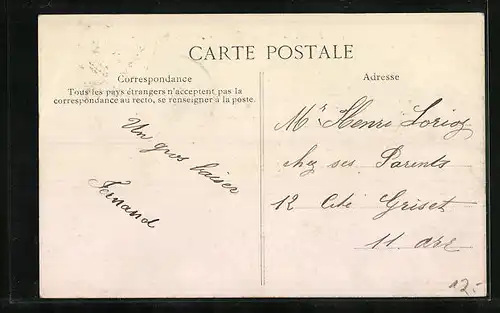 CARTE POSTALE
Correspondance
Tous les pays étrangers n'acceptent pas la
correspondance au recto, se renseigner à la poste.
Un gros baiser
Fernand
Adresse
Mr Henri Lorioz
chez ses Parents
12 Cité Griset
11. arr
12.-